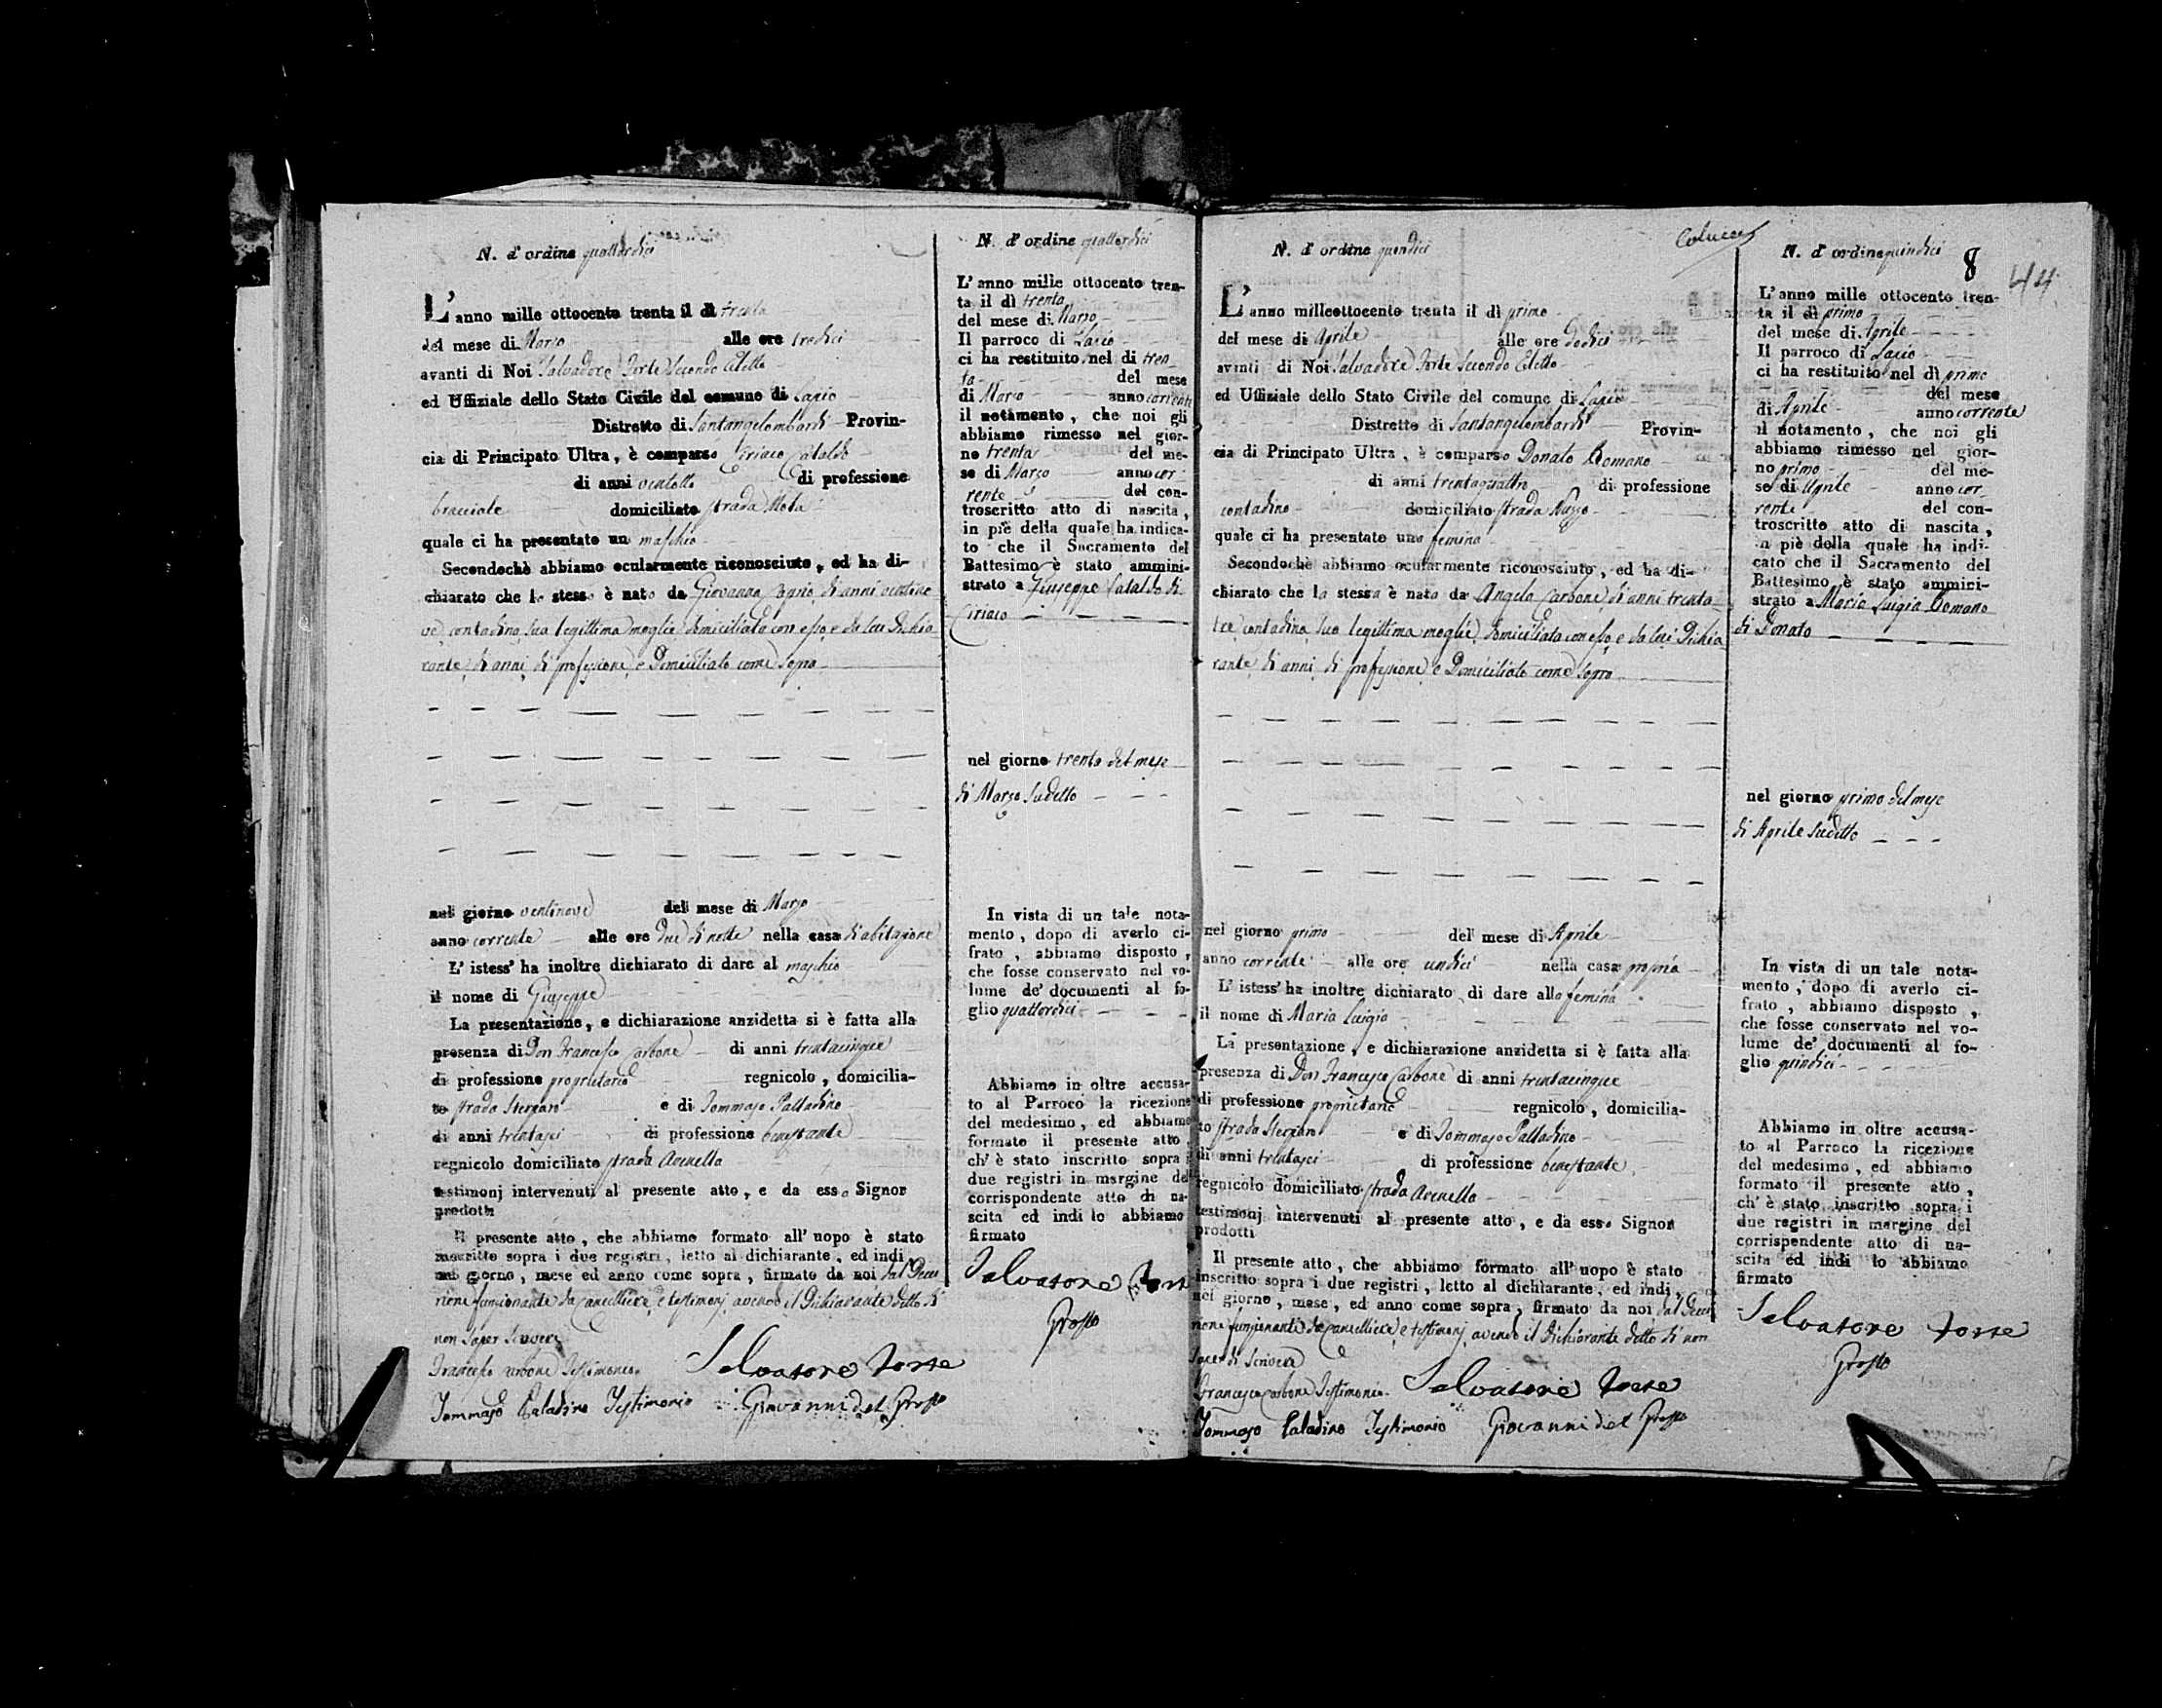 N. d'ordine quattordici
L'anno mille ottocento trenta il dì trenta
del mese di Marzo alle ore tredici
avanti di Noi Salvadore Forte Secondo Eletto
ed Uffiziale dello Stato Civile del comune di Lapio
Distretto di Santangelombardi Provin-
cia di Principato Ultra, è comparso Ciriaco Cataldo
di anni ventotto di professione
bracciale domiciliato strada
quale ci ha presentato un maschio
Secondochè abbiamo ocularmente riconosciuto, ed ha di-
chiarato che lo stesso è nato da Giovanna di anni ventino
ve contadina sua legittima moglie domiciliata con esso e da lui Dichia
rante di anni di professione e Domiciliato come sopra
nel giorno ventinove del mese di Marzo
anno corrente alle ore due di notte nella casa di abitazione
L'istess' ha inoltre dichiarato di dare al maschio
il nome di Giuseppe
La presentazione, e dichiarazione anzidetta si è fatta alla
presenza di Don Francesco Carbone di anni trentacinque
di professione proprietario regnicolo, domicilia-
to strada e di Tommaso Palladino
di anni trentasei di professione benestante
regnicolo domiciliato strada Arenella
testimonj intervenuti al presente atto, e da esso Signor
prodotti
Il presente atto, che abbiamo formato all'uopo è stato
inscritto sopra i due registri, letto al dichiarante, ed indi
nel giorno, mese ed anno come sopra, firmato da noi dal Decu
rione funzionante da Cancelliere, e testimonj avendo il Dichiarante detto di
non saper scrivere
Francesco Carbone Testimonio
Salvatore Forte
Tommaso Paladino Testimonio Giovanni del Grosso
N. d'ordine quattordici
L'anno mille ottocento tren-
ta il dì trenta
del mese di Marzo
Il parroco di Lapio
ci ha restituito nel dì tren
ta del mese
di Marzo anno corrente
il notamento, che noi gli
abbiamo rimesso nel gior-
no trenta del me-
se di Marzo anno cor
rente del con-
troscritto atto di nascita,
in piè della quale ha indica-
to che il Sacramento del
Battesimo è stato ammini-
strato a Giuseppe Cataldo di
Ciriaco
nel giorno trenta del mese
di Marzo sudetto
In vista di un tale nota-
mento, dopo di averlo ci-
frato, abbiamo disposto,
che fosse conservato nel vo-
lume de' documenti al fo-
glio quattordici
Abbiamo in oltre accusa-
to al Parroco la ricezione
del medesimo, ed abbiamo
formato il presente atto,
ch'è stato inscritto sopra i
due registri in margine del
corrispondente atto di na-
scita ed indi lo abbiamo
firmato
Salvatore Forte
Grosso
Colucci
N. d'ordine quindici
L'anno milleottocento trenta il dì primo
del mese di Aprile alle ore dodici
avanti di Noi Salvadore Forte Secondo Eletto
ed Uffiziale dello Stato Civile del comune di Lapio
Distretto di Santangelombardi Provin-
cia di Principato Ultra, è comparso Donato Romano
di anni trentaquattro di professione
contadino domiciliato strada
quale ci ha presentato una femina
Secondochè abbiamo ocularmente riconosciuto, ed ha di-
chiarato che la stessa è nata da Angela Carbone di anni trenta
tre contadina sua legittima moglie domiciliata con esso, e da lui Dichia
rante di anni di professione e Domiciliato come sopra
nel giorno primo del mese di Aprile
anno corrente alle ore undici nella casa propria
L'istess' ha inoltre dichiarato di dare alla femina
il nome di Maria Luigia
La presentazione, e dichiarazione anzidetta si è fatta alla
presenza di Don Francesco Carbone di anni trentacinque
di professione proprietario regnicolo, domicilia-
to strada e di Tommaso Palladino
di anni trentasei di professione benestante
regnicolo domiciliato strada Arenella
testimonj intervenuti al presente atto, e da esso Signor
prodotti
Il presente atto, che abbiamo formato all'uopo è stato
inscritto sopra i due registri, letto al dichiarante, ed indi,
nel giorno, mese, ed anno come sopra, firmato da noi dal Decu
rione funzionante da Cancelliere, e testimonj avendo il Dichiarante detto di non
di scrivere
Francesco Carbone Testimonio Salvatore Forte
Tommaso Paladino Testimonio Giovanni del Grosso
N. d'ordine quindici
8 44
L'anno mille ottocento tren-
ta il dì primo
del mese di Aprile
Il parroco di Lapio
ci ha restituito nel dì primo
del mese
di Aprile anno corrente
il notamento, che noi gli
abbiamo rimesso nel gior-
no primo del me-
se di Aprile anno cor
rente del con-
troscritto atto di nascita,
in piè della quale ha indi-
cato che il Sacramento del
Battesimo è stato ammini-
strato a Maria Luigia Romano
di Donato
nel giorno primo del mese
di Aprile sudetto
In vista di un tale nota-
mento, dopo di averlo ci-
frato, abbiamo disposto,
che fosse conservato nel vo-
lume de' documenti al fo-
glio quindici
Abbiamo in oltre accusa-
to al Parroco la ricezione
del medesimo, ed abbiamo
formato il presente atto,
ch'è stato inscritto sopra i
due registri in margine del
corrispondente atto di na-
scita ed indi lo abbiamo
firmato
Salvatore Forte
Grosso